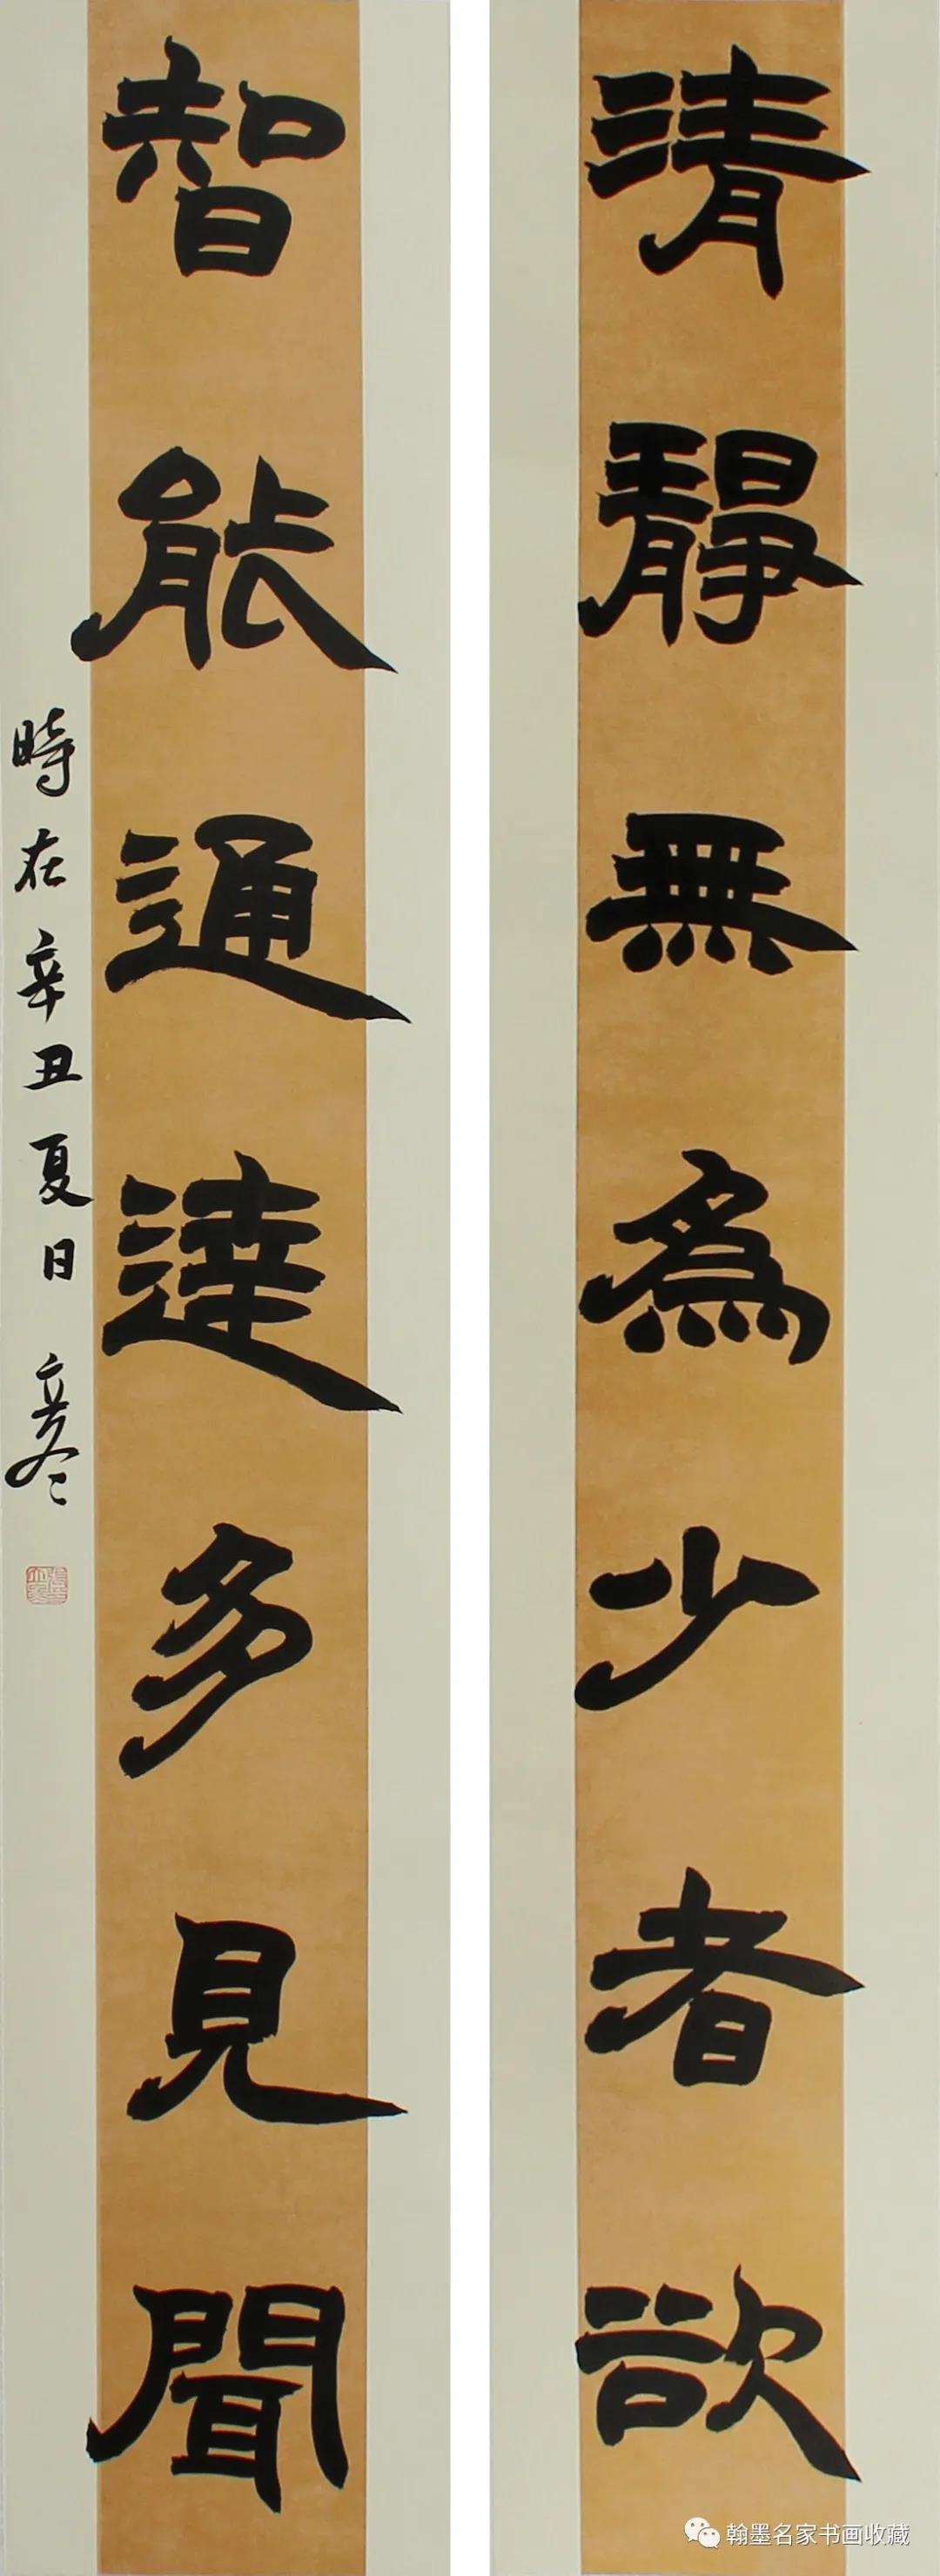 清靜無為少者欲
智能通達多見聞
時在辛丑夏日
翰墨名家书画收藏